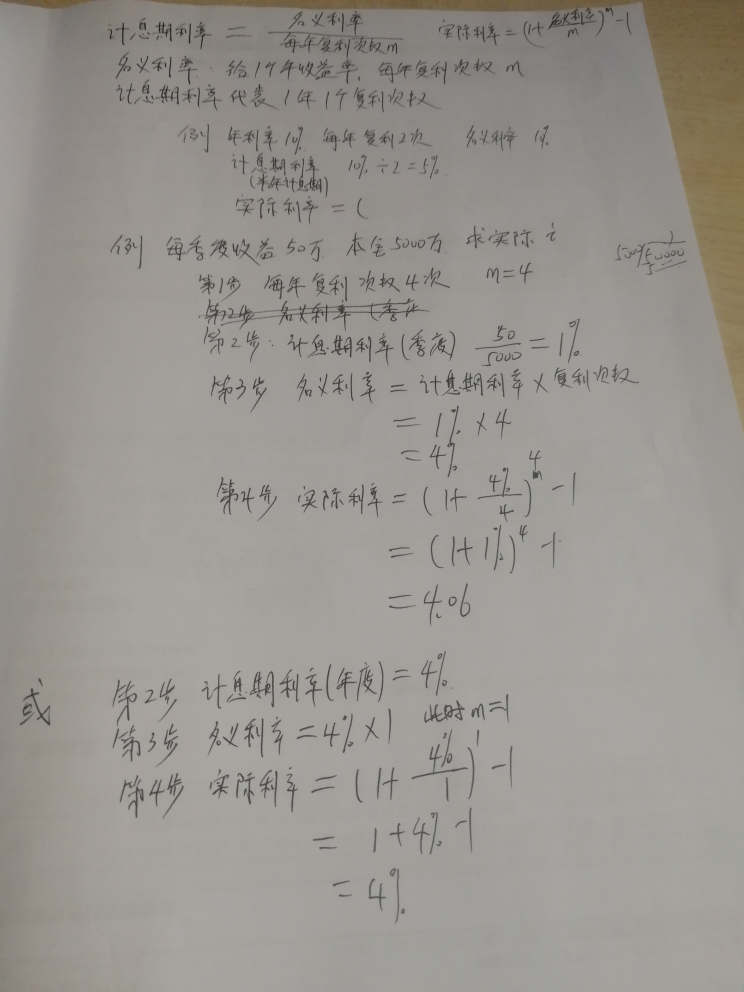 计息期利率 = 名义利率 / 每年复利次数m 实际利率=(1+名义利率/m)^m-1
名义利率:给1个年收益率,每年复利次数 m
计息期利率代表1年1个复利次数
例 年利率10% 每年复利2次 名义利率
计息期利率 10%÷2=5%
(半年计息期)
实际利率=(
例 每季度收益50万 本金5000万 求实际 i
第1步 每年复利次数4次 m=4
第2步 名义利率(季度
第2步:计息期利率(季度) 50/5000=1%
第3步 名义利率=计息期利率×复利次数
=1%×4
=4%
第4步 实际利率=(1+4%/4)^m 4-1
=(1+1%)^4-1
=4.06
或 第2步 计息期利率(年度)=4%
第3步 名义利率=4%×1 此时m=1
第4步 实际利率=(1+4%/1)^1-1
=1+4%-1
=4%